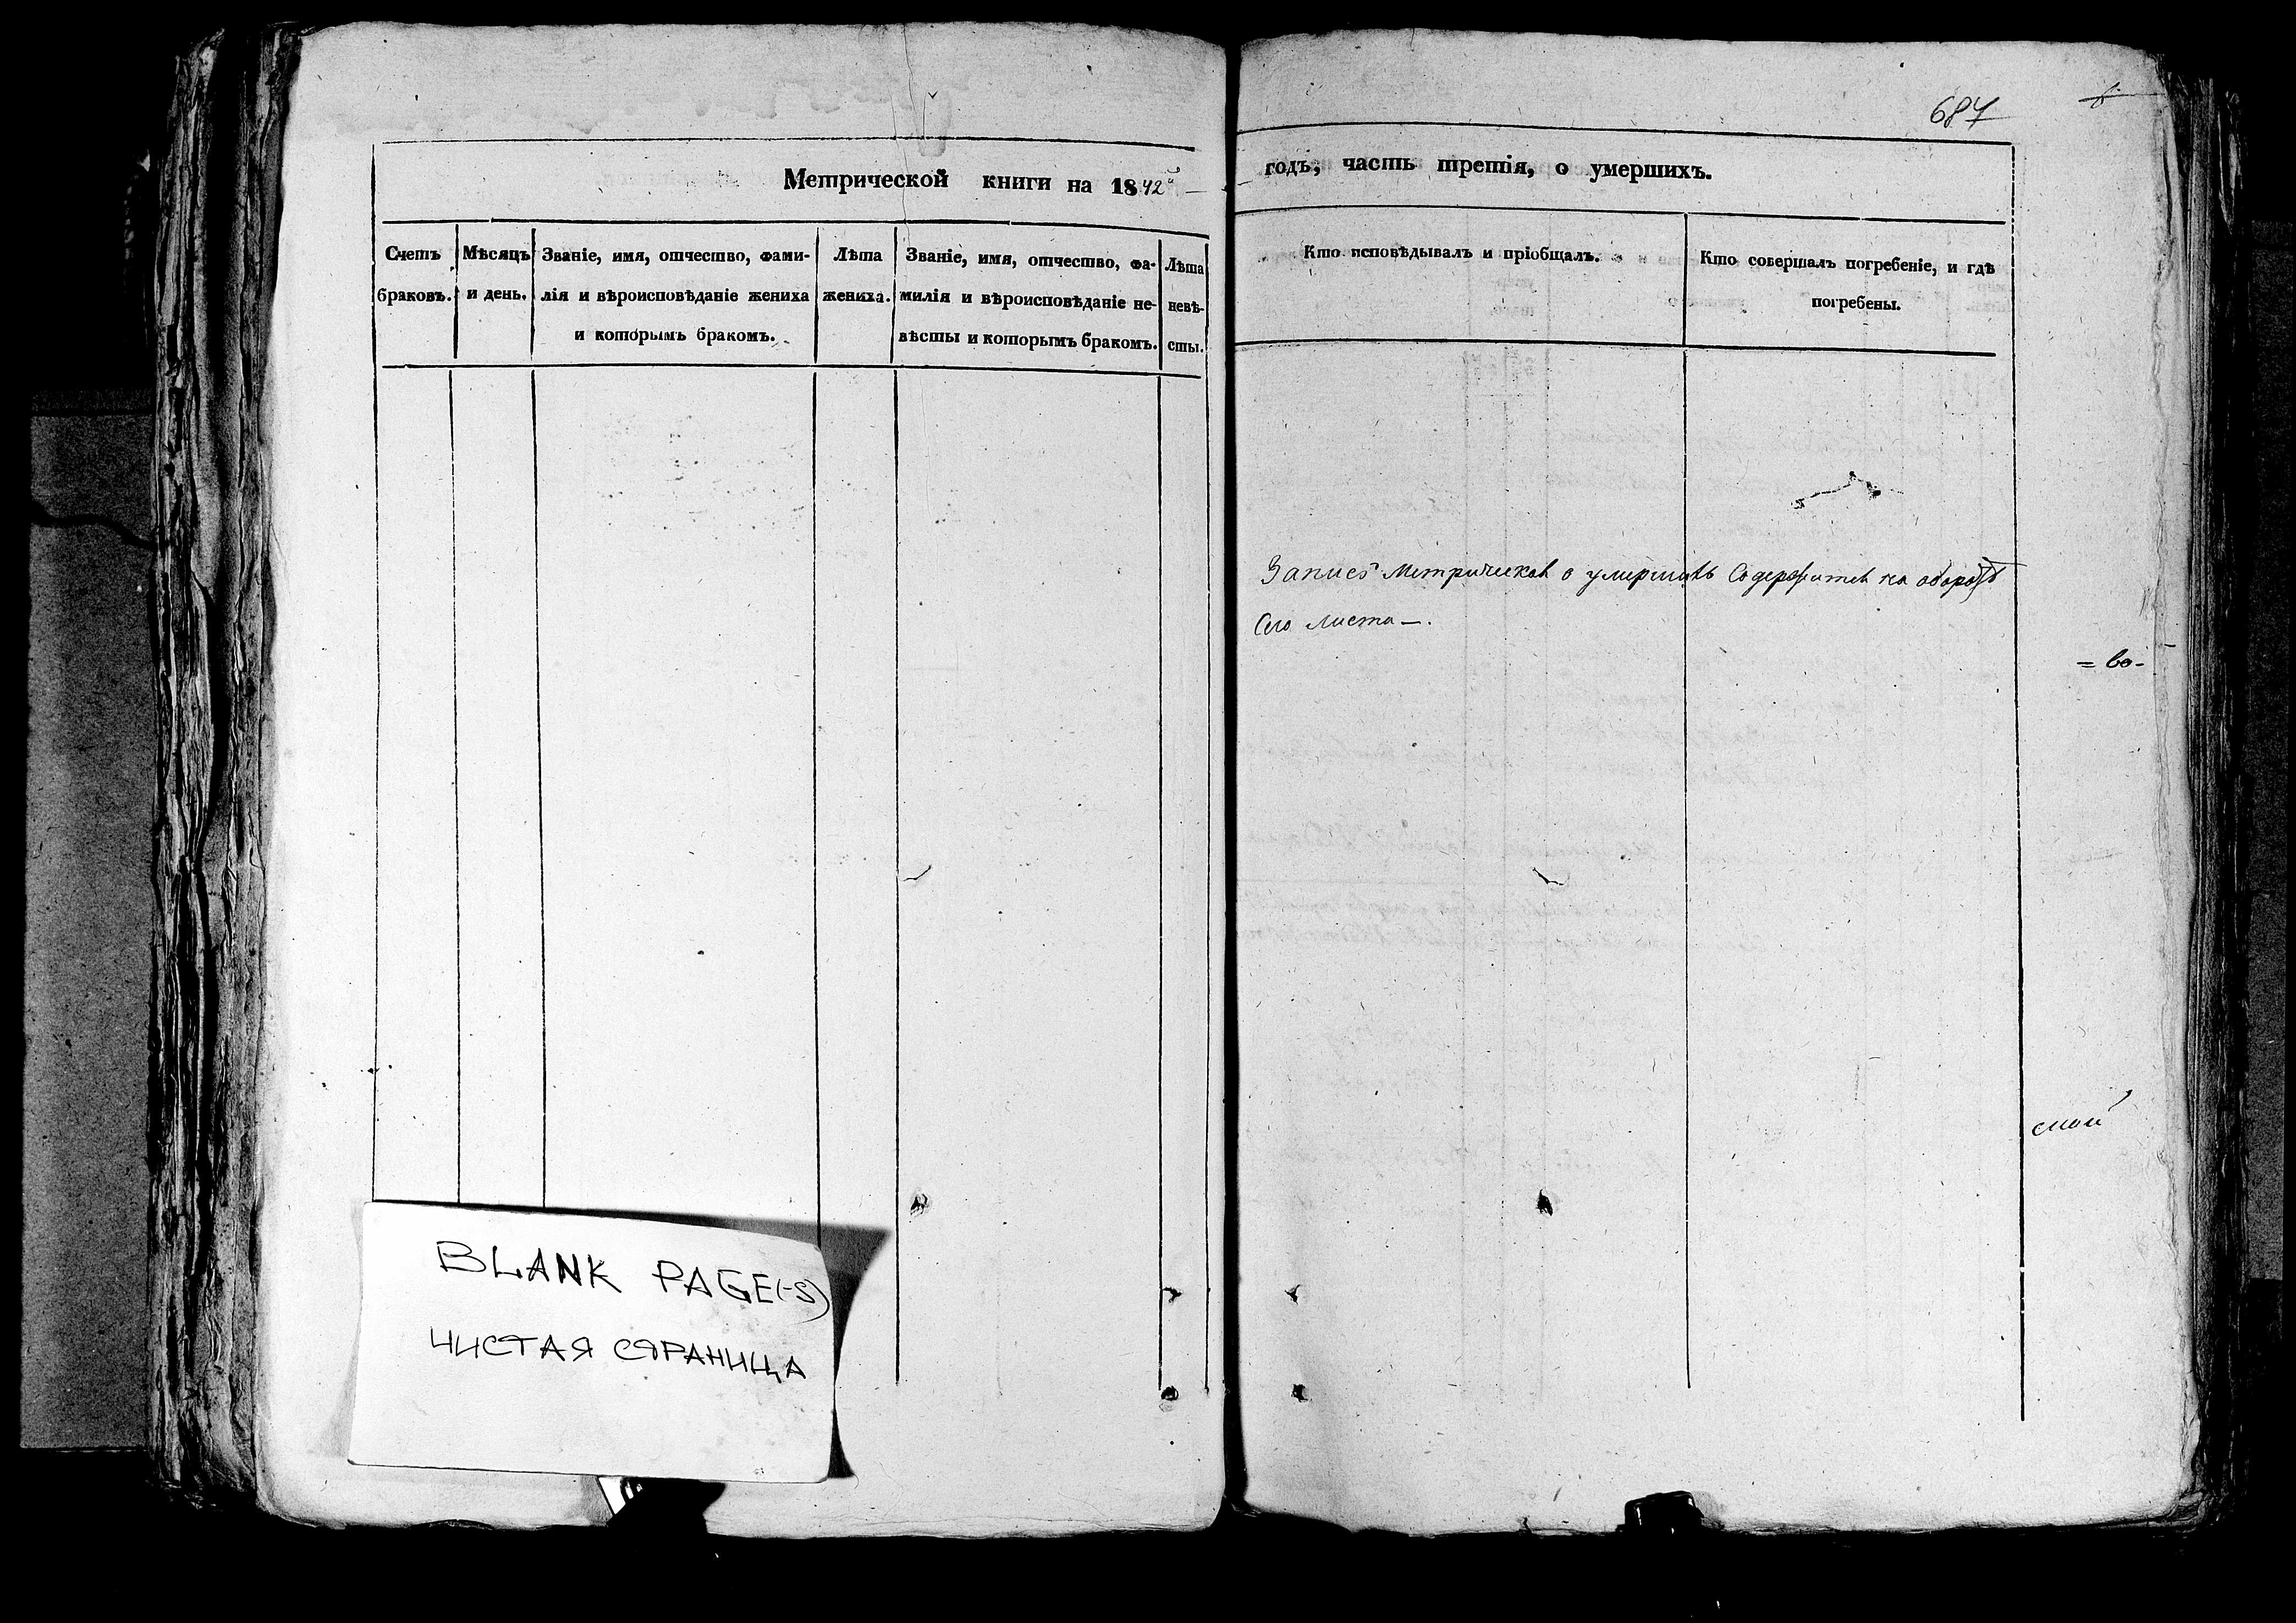 Метрической книги на 1842й
Счетъ браковъ.
Мѣсяцъ и день.
Званіе, имя, отчество, фами-
лія и вѣроисповѣданіе жениха
и которымъ бракомъ.
Лѣта
жениха.
Званіе, имя, отчество, фа-
милія и вѣроисповѣданіе не-
вѣсты и которымъ бракомъ.
Лѣта
невѣ-
сты.
BLANK PAGE(-S)
ЧИСТАЯ СТРАНИЦА
687
годъ, часть третія, о умершихъ.
Кто исповѣдывалъ и пріобщалъ.
Кто совершалъ погребеніе, и гдѣ
погребены.
Запись Метрическая о умершихъ Содержится на оборотѣ
Сего листа —.
= во-